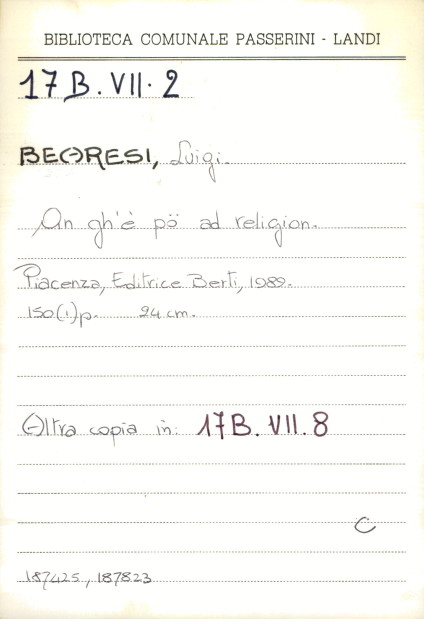 BIBLIOTECA COMUNALE PASSERINI - LANDI
17 B. VII. 2
BEARESI, Luigi.
An gh'è pö ad religion.
Piacenza, Editrice Berti, 1989.
150(1)p. 24 cm.
Altra copia in: 17 B. VII. 8
C
187425, 187823